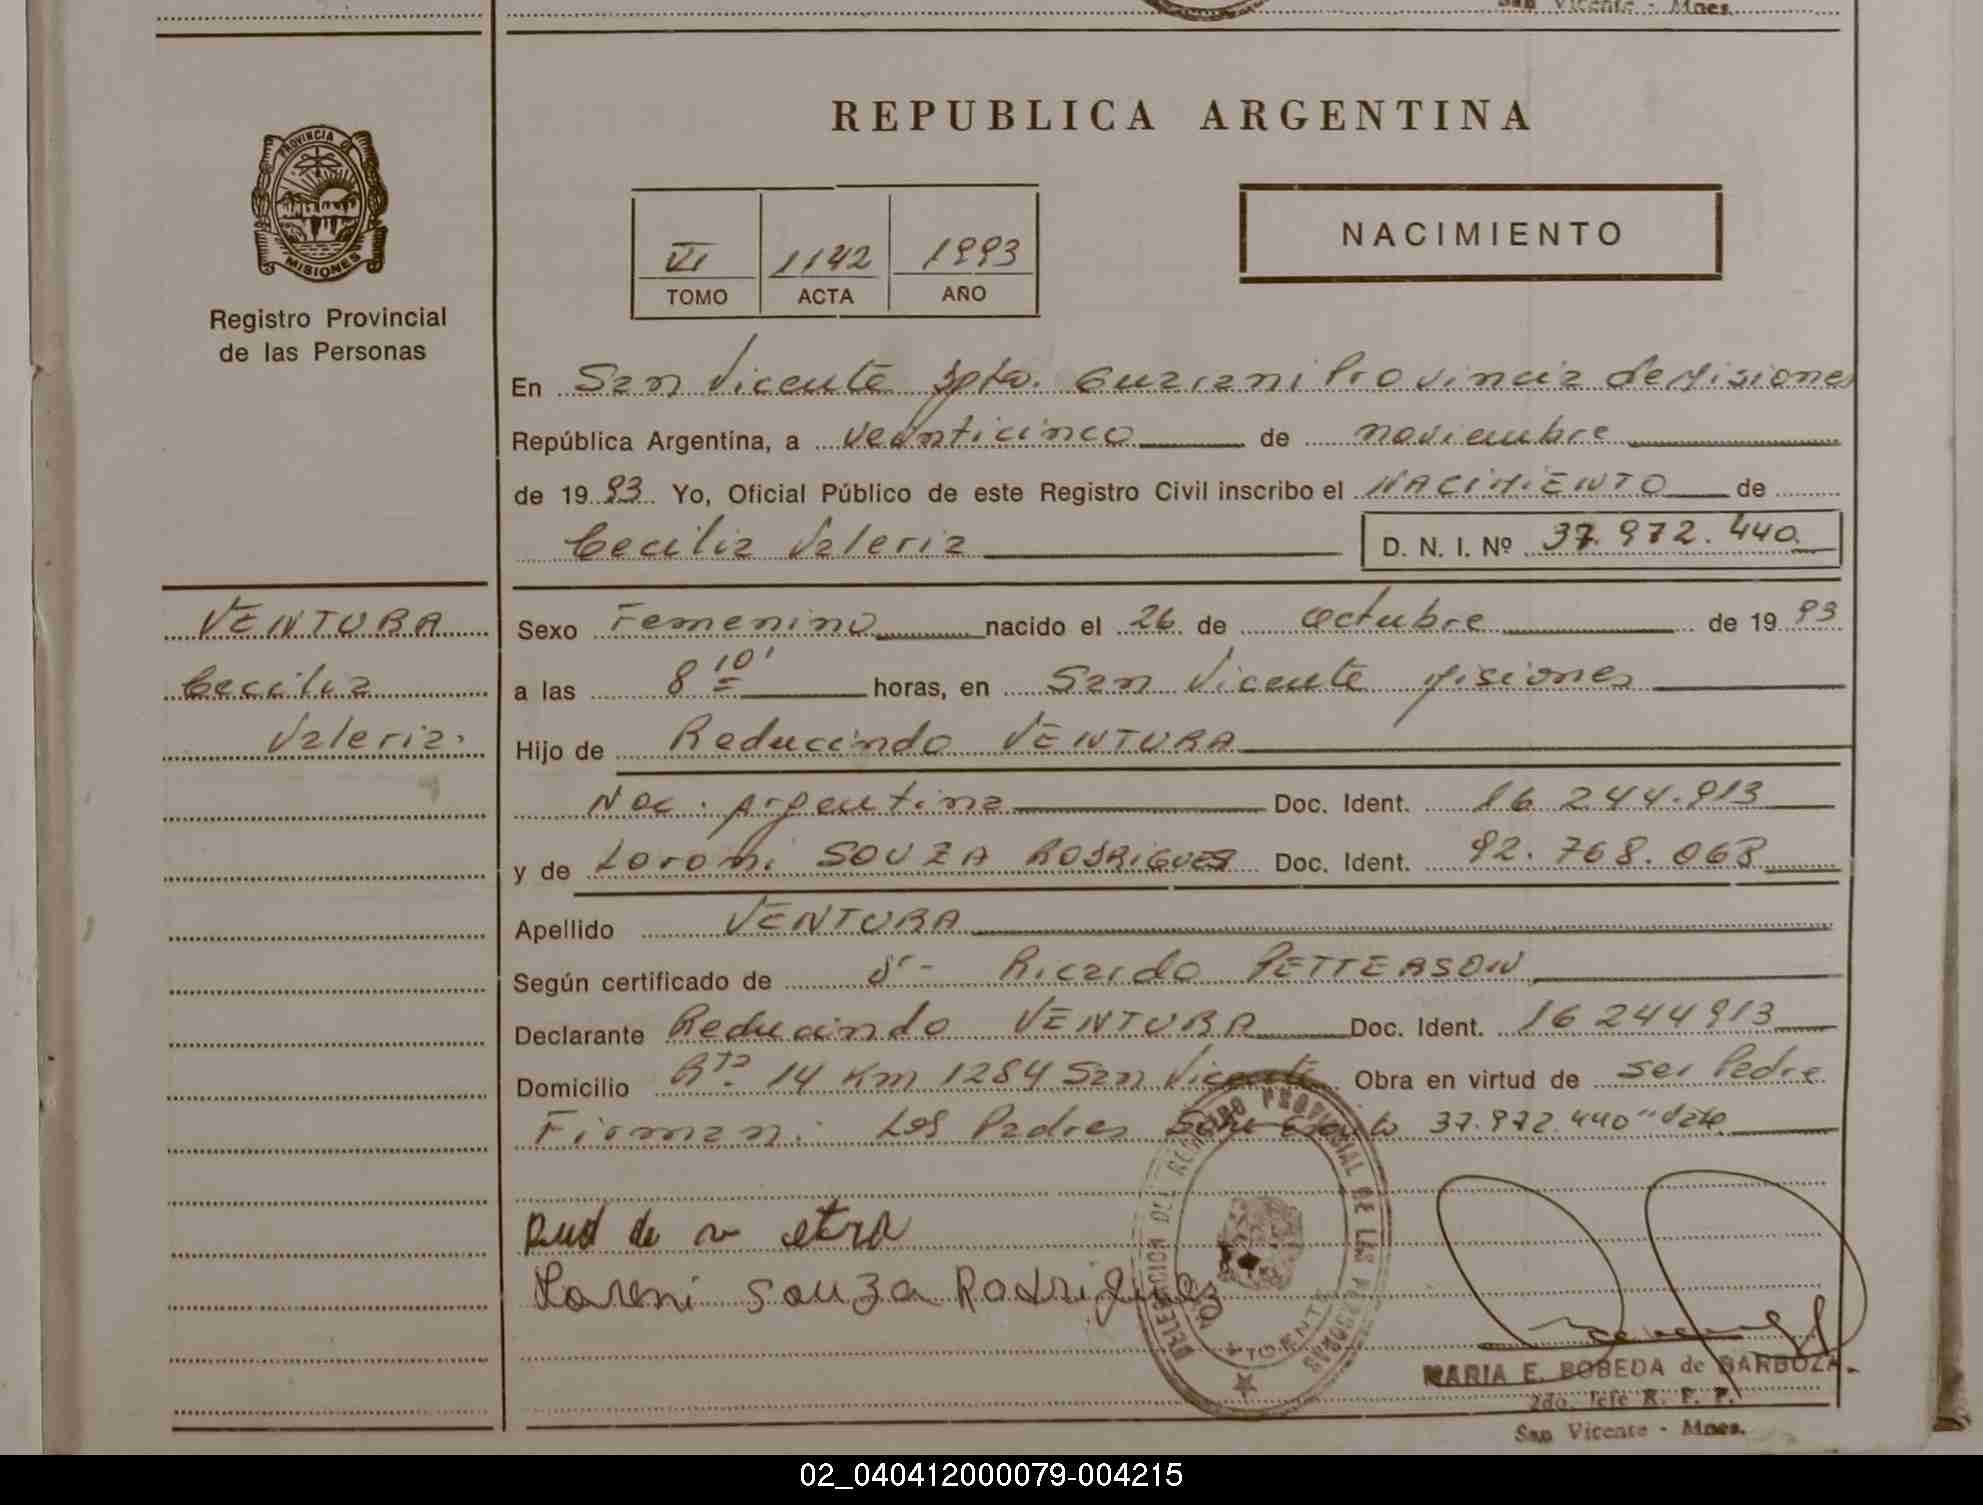 San Vicente - Mnes.
REPUBLICA ARGENTINA
PROVINCIA DE
MISIONES
Registro Provincial
de las Personas
VI 1142 1993
TOMO ACTA AÑO
NACIMIENTO
En San Vicente Dpto. Guarani Provincia de Misiones
República Argentina, a veinticinco de noviembre
de 1993 Yo, Oficial Público de este Registro Civil inscribo el NACIMIENTO de
Cecilia Valeria D. N. I. Nº 37.972.440.
VENTURA
Cecilia
Valeria.
Sexo Femenino nacido el 26 de octubre de 1993
a las 8 10' horas, en San Vicente Misiones
Hijo de Reducindo VENTURA
Nac. Argentina Doc. Ident. 16 244.913
y de Loreni SOUZA RODRIGUEZ Doc. Ident. 92.768.068
Apellido VENTURA
Según certificado de Dr- Ricardo PETTERSON
Declarante Reducindo VENTURA Doc. Ident. 16 244913
Domicilio Rta. 14 Km 1284 San Vicente Obra en virtud de ser Padre
Firman: Los Padres 37.972.440 "Vale
Loreni Souza Rodriguez
DELEGACION DEL REGISTRO PROVINCIAL DE LAS PERSONAS
SAN VICENTE
MARIA E. BOBEDA de BARBOZA
2do. Jefe R. P. P.
San Vicente - Mnes.
02_040412000079-004215